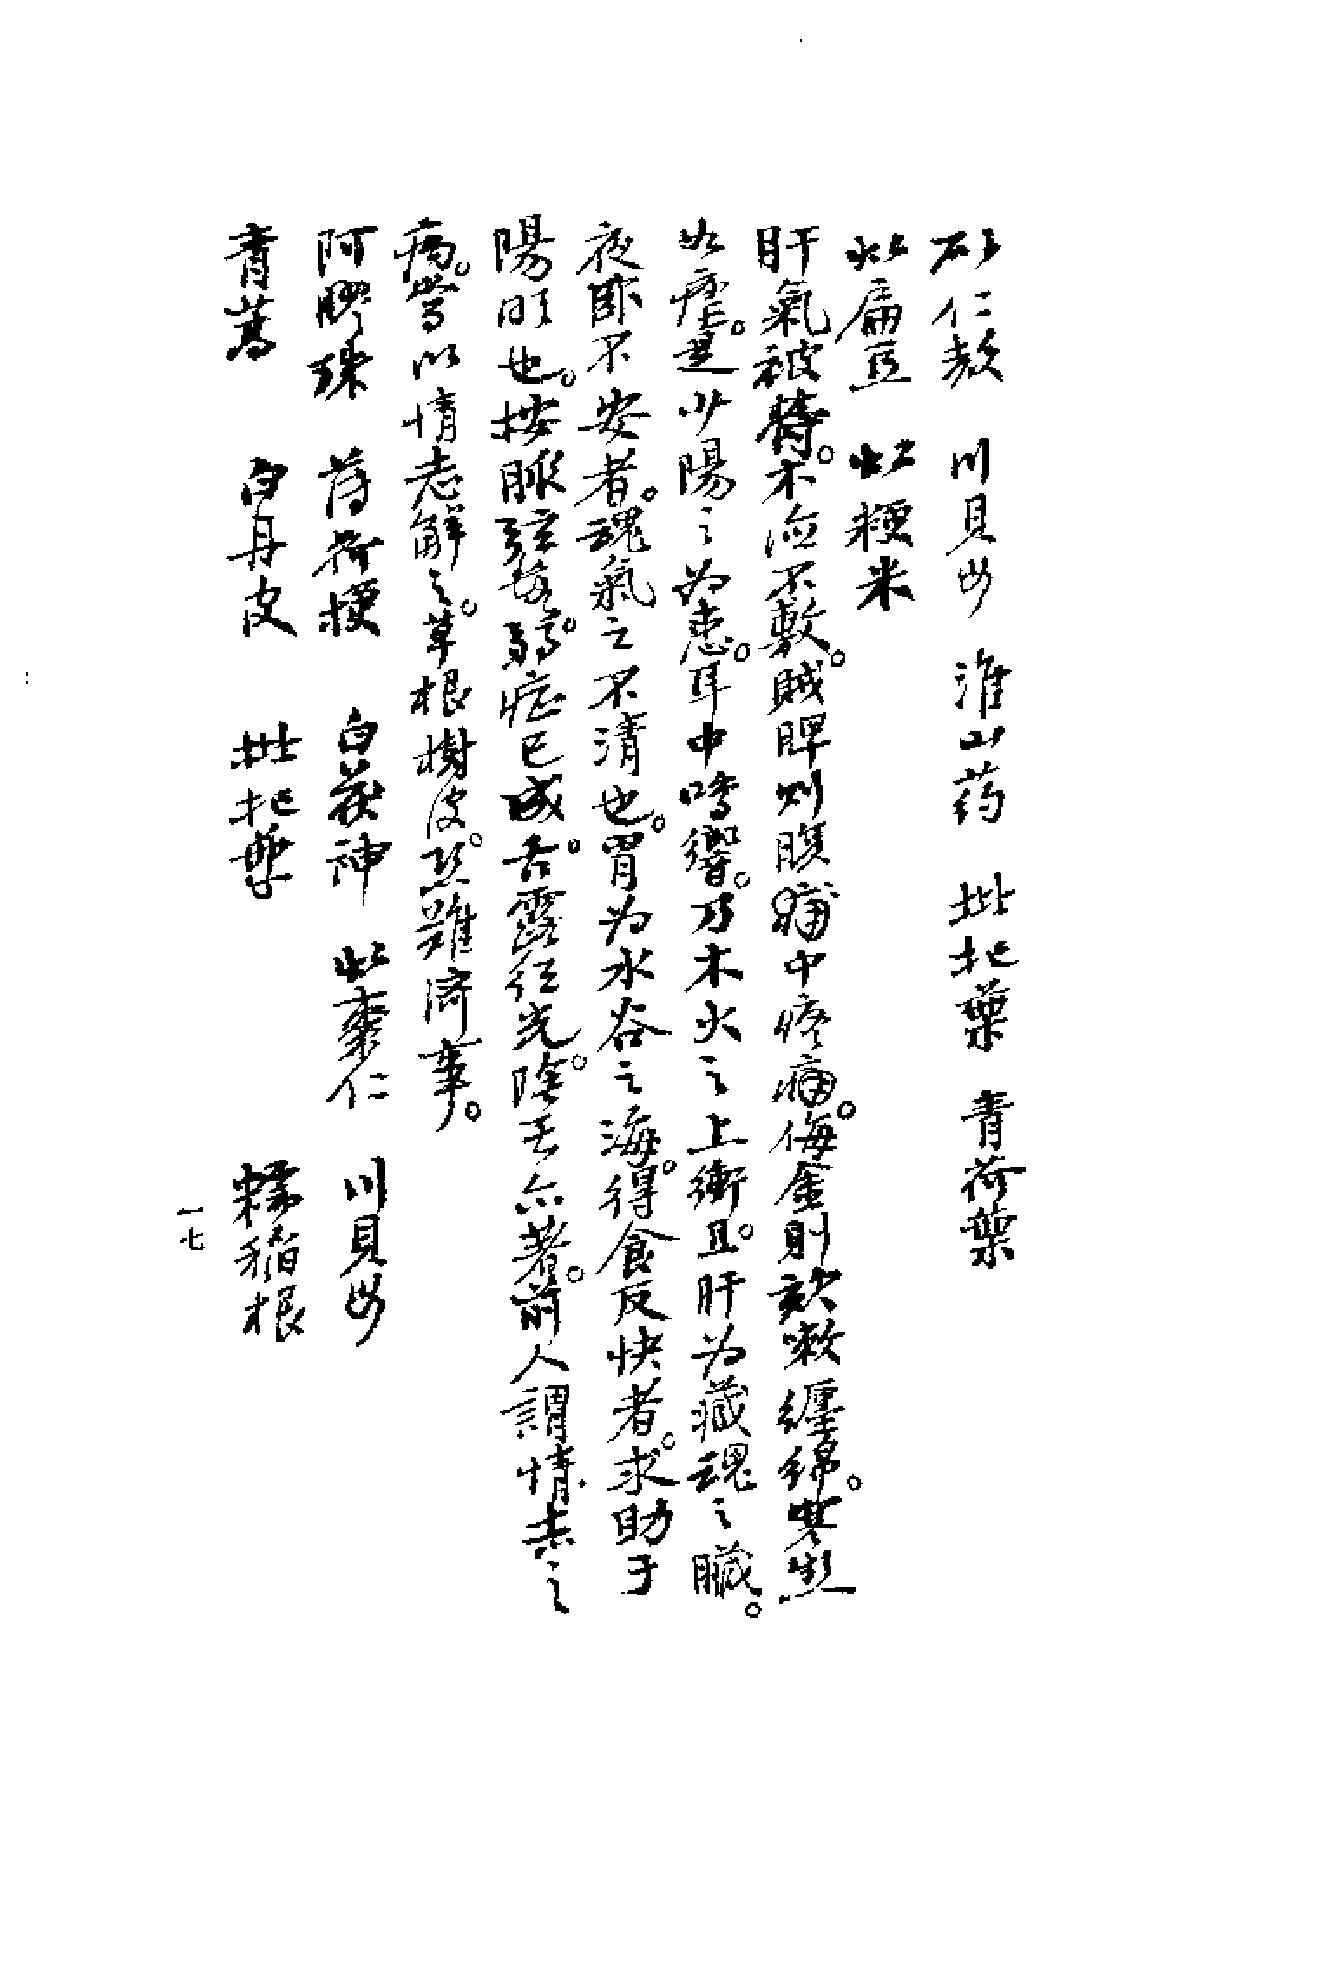 砂仁殻 川貝母 淮山药 枇杷葉 青荷葉
北扁豆 北粳米
肝氣被 。木应不敷。賊脾則腹 中疼痛。侮金則咳嗽纏綿。寒熱
如瘧。是少陽之为患。耳中鸣響。乃木火之上衝。且肝为藏魂之臟。
夜卧不安者。魂氣之不清也。胃为水谷之海。得食反快者。求助于
陽明也。按脈弦數弱。症已成。舌露红光。陰 亦著。前人謂情志之
病。當以情志解之。草根樹皮。恐難濟事。
阿膠珠 薄荷梗 白茯神 北棗仁 川貝母
青蒿 白丹皮 枇杷葉 糯稻根
一七